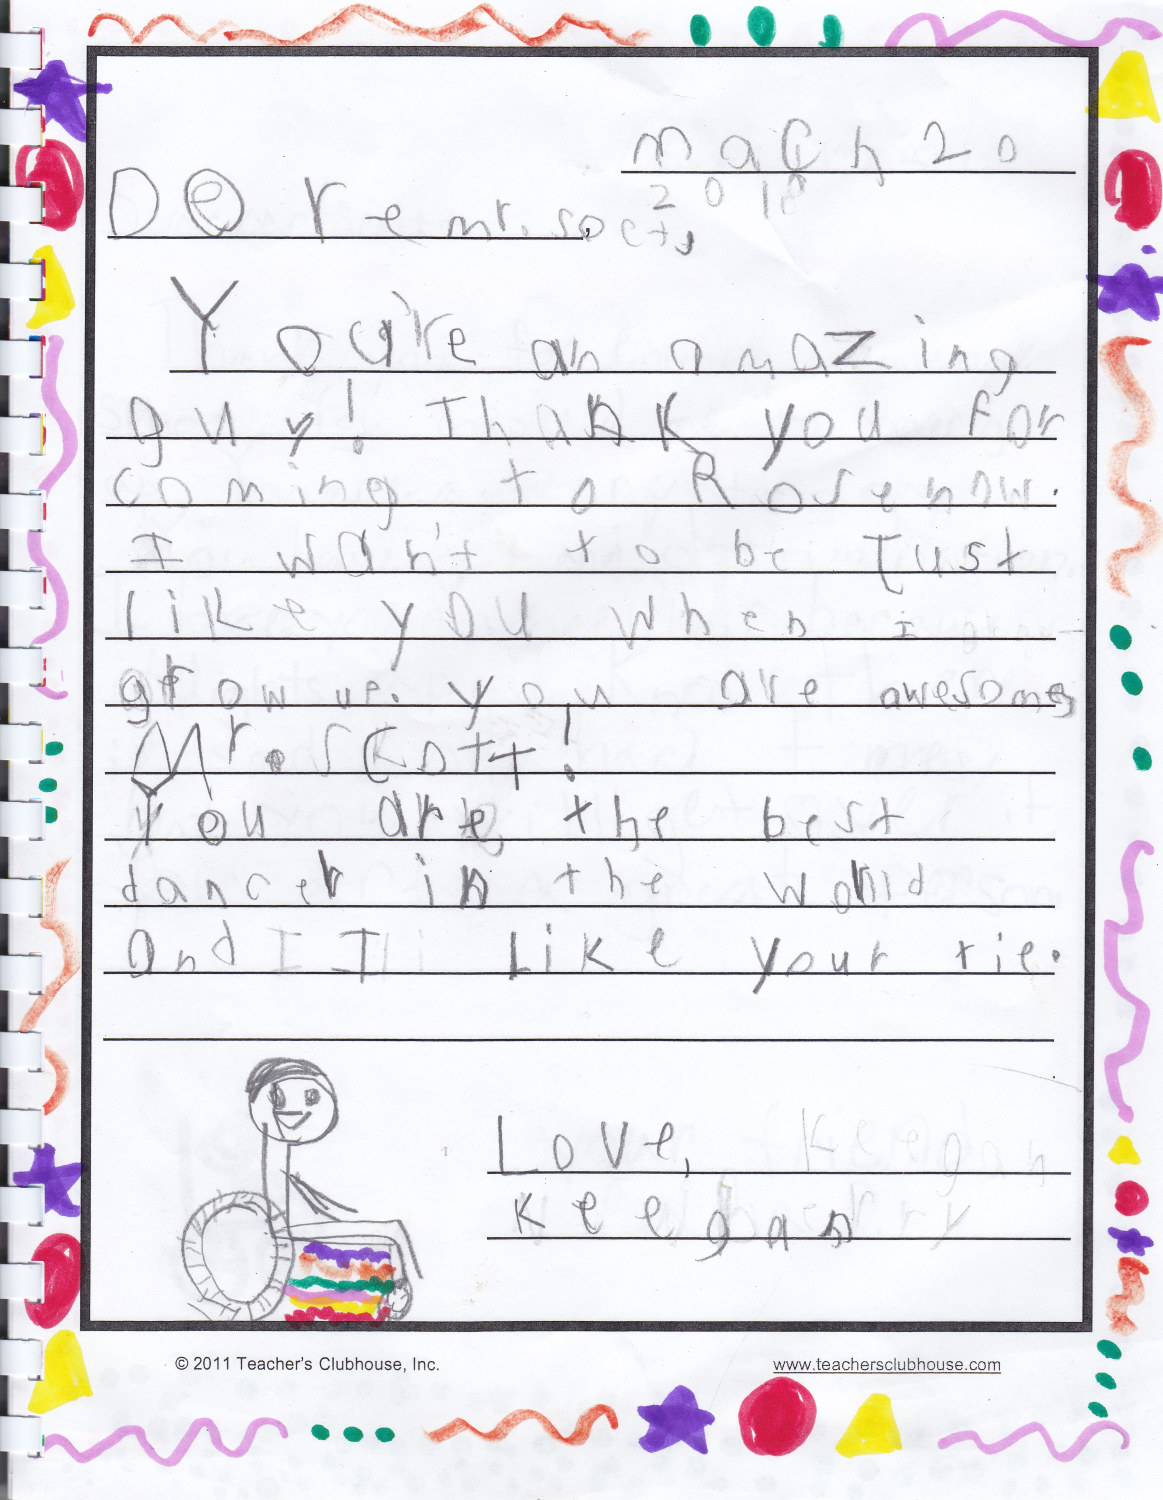 mach 20
2018
Deore mr. soct,
You're an amazing
guy! Thank you for
coming to Rosenow.
I wan't to be Just
like you when I
grow up. you are awesome
Mr. Scott!
You are the best
dancer in the world
and I like your tie.
Love,
keegan
© 2011 Teacher's Clubhouse, Inc.
www.teachersclubhouse.com